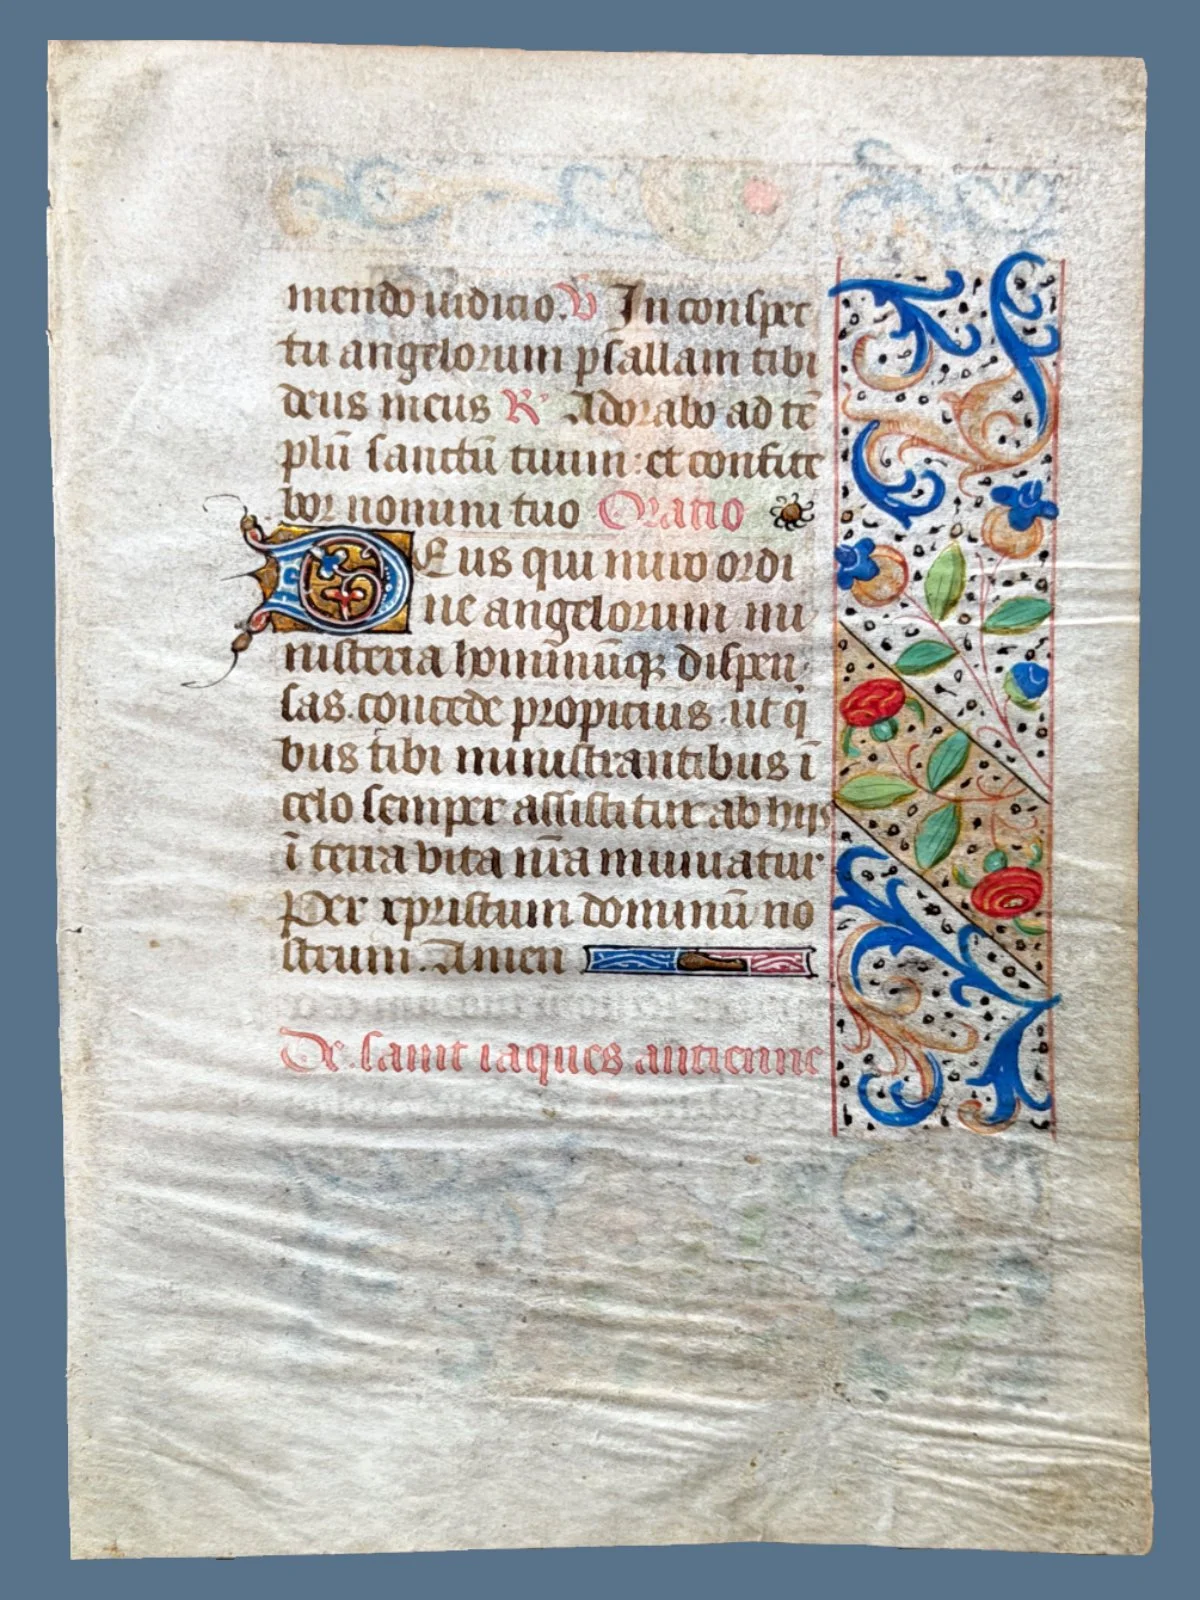 mendo iudicio. V In conspec
tu angelorum psallam tibi
deus meus R Adorabo ad tē
plū sanctū tuum: et confite
bor nomini tuo Oratio
Deus qui miro ordi
ne angelorum mi
nisteria hominūq; dispen
sas. concede propicius. ut q̄
bus tibi ministrantibus ī
celo semper assistitur ab hijs
ī terra vita nr̄a muniatur
Per xpristum dominū no
strum. Amen
De. saint iaques antienne